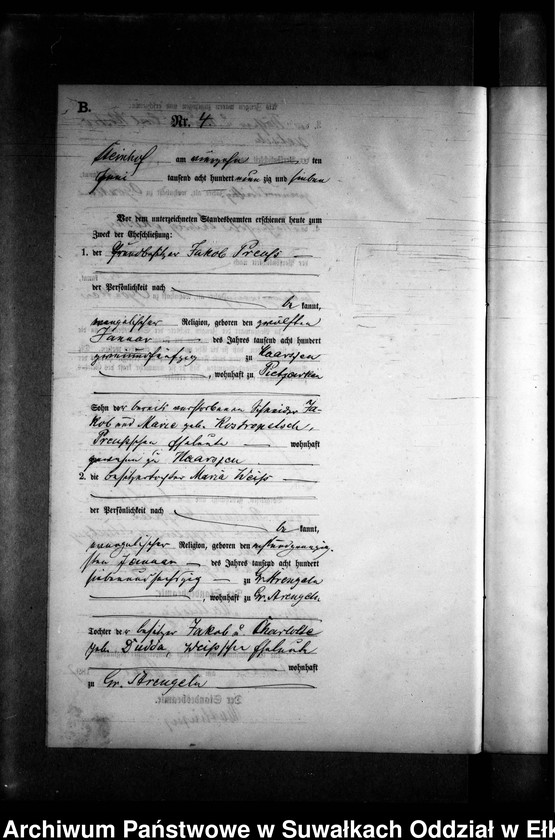 B.
Nr. 4.
Steinhof, am vierzehn ten
Juni tausend acht hundert neun zig und sieben
Vor dem unterzeichneten Standesbeamten erschienen heute zum
Zweck der Eheschließung:
1. der Grundbesitzer Jakob Preuß
der Persönlichkeit nach
be kannt,
evangelischer Religion, geboren den zwölften
Januar des Jahres tausend acht hundert
zweiundsechzig zu Haarszen
, wohnhaft zu Pietzarken
Sohn der bereits verstorbenen Schneider Ja-
kob und Marie geb. Kostropetsch,
Preußschen Eheleute wohnhaft
gewesen zu Haarszen
2. die Besitzertochter Maria Weiß
der Persönlichkeit nach
be kannt,
evangelischer Religion, geboren den
sten Januar des Jahres tausend acht hundert
siebenundsechzig zu Gr. Strengeln
, wohnhaft zu Gr. Strengeln
Tochter der Besitzer Jakob u. Charlotte
geb. Dudda, Weißschen Eheleute
wohnhaft
zu Gr. Strengeln
Archiwum Państwowe w Suwałkach Oddział w Ełk